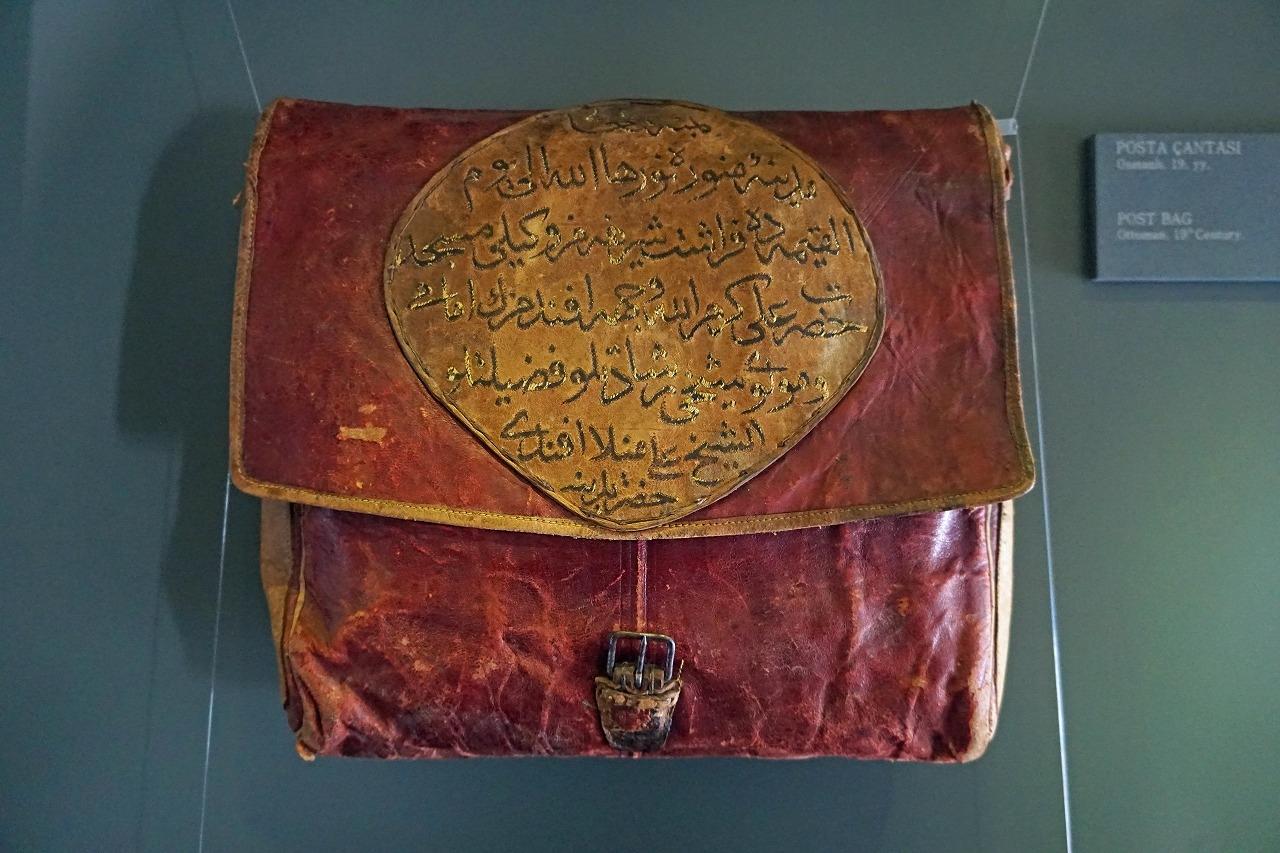 مدينهٔ منوره نورها الله الى يوم
القيمه ده فراشت شريفه مز وكيلى مسجد
حضرت على كرم الله وجهه افندمزك امامى
ومولوى شيخى رشادتلو فضيلتلو
الشيخ على منلا افندى
حضرتلرينه
POSTA ÇANTASI
Osmanlı, 19. yy.
POST BAG
Ottoman, 19th Century.